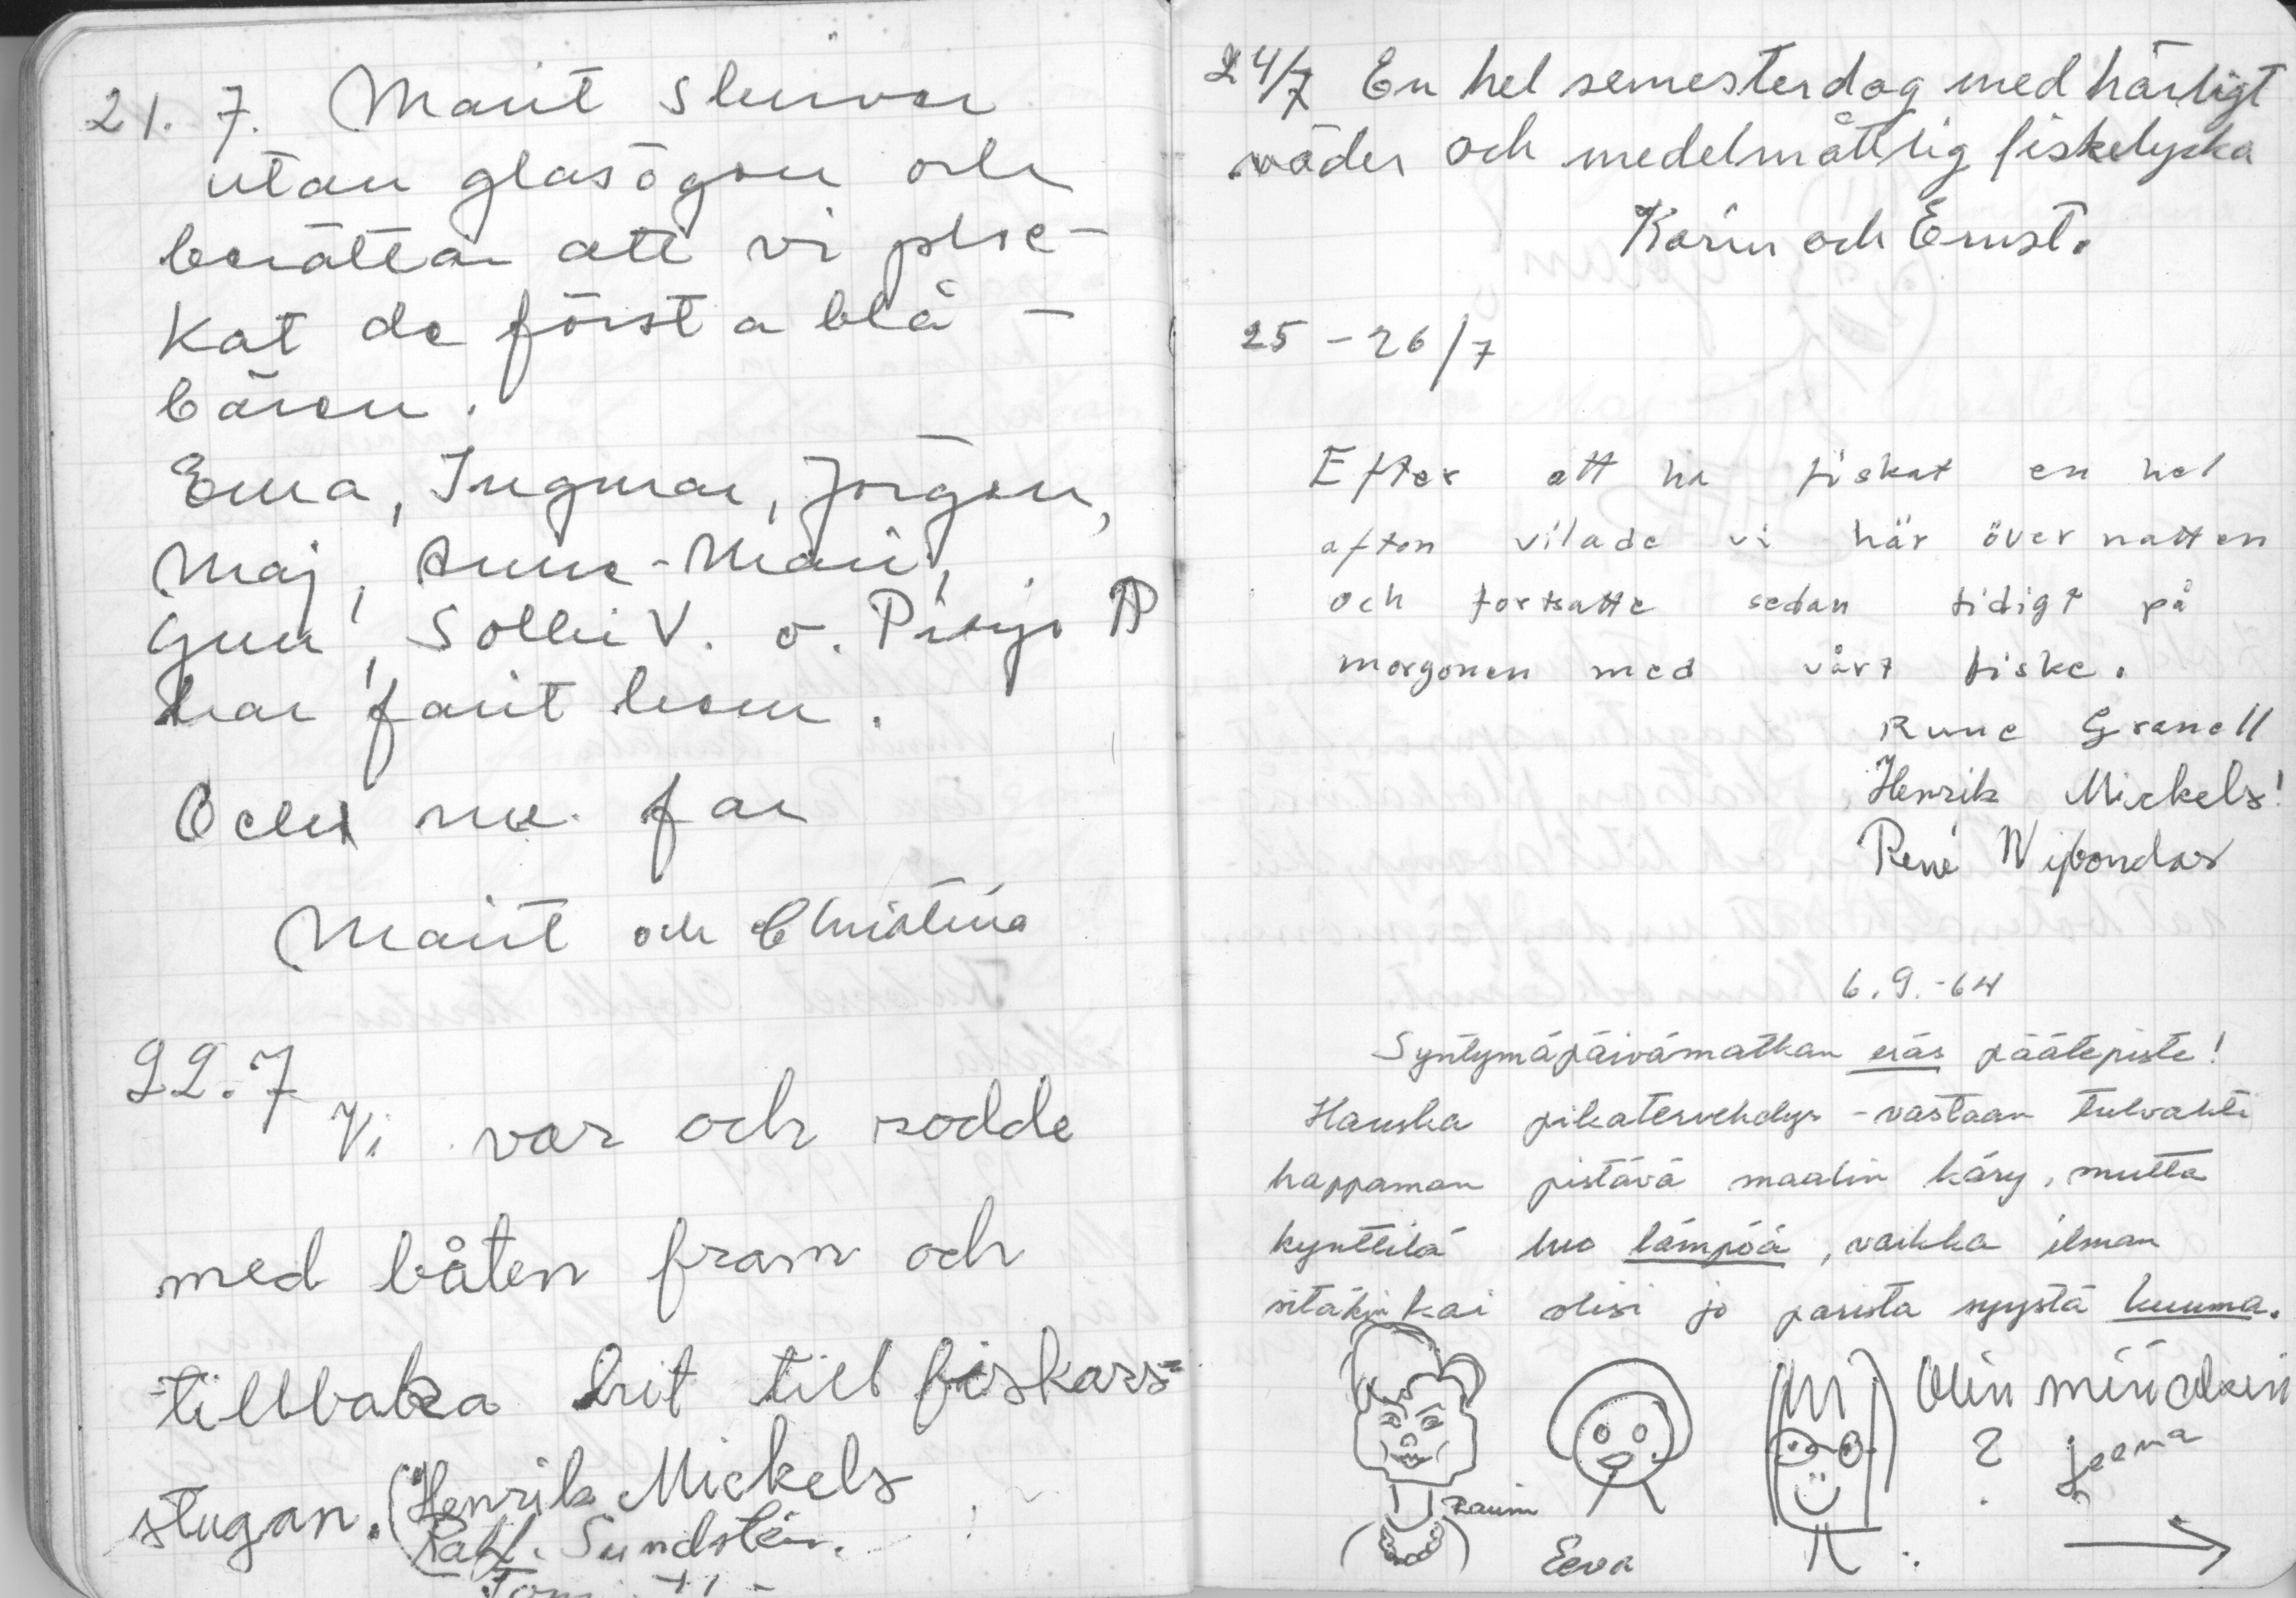 21. 7. Marit skriver
utan glasögon och
berättar att vi ploc-
kat de första blå-
bären.
Erna, Ingmar, Jörgen,
Maj, Anne-Mari,
Gun, Solli V. o.
har farit hem.
Och nu far
Marit och Christina
22.7
Vi var och rodde
med båten fram och
tillbaka hit till fiskars-
stugan. (Henrik Mickels
Ralf. Sundstén.
24/7 En hel semesterdag med härligt
väder och medelmåttig fiskelycka
Karin och Ernst.
25-26/7
Efter att ha fiskat en hel
afton vilade vi här över natten
och fortsatte sedan tidigt på
morgonen med vårt fiske.
Rune Granell
Henrik Mickels!
René
6.9.-64
Syntymäpäivämatkan eräs päätepiste!
Hauska pikatervehdys - vastaan tulvahti
happaman pistävä maalin käry, mutta
kynttilä luo lämpöä, vaikka ilman
sitäkin kai olisi jo parista syystä kuuma.
Olin minäkin
? Leena
Rauni
Eeva